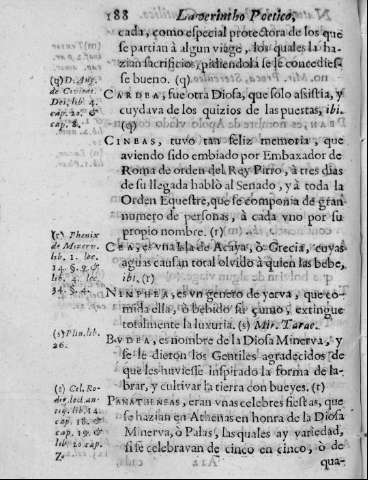 188 Laverintho Poetico,
cada, como especial protectora de los que
se partian à algun viage, los quales la ha-
zian sacrificios, pidiendola se le concedies-
se bueno. (q)
(q) D. Aug.
de Civitat.
Dei, lib. 4.
cap. 21. &
cap. 8.
CARDEA, fue otra Diosa, que solo asistia, y
cuydava de los quizios de las puertas, ibi.
(q)
CINEAS, tuvo tan feliz memoria, que
aviendo sido embiado por Embaxador de
Roma de orden del Rey Pirro, à tres dias
de su llegada hablò al Senado, y à toda la
Orden Equestre, que se componia de gran
numero de personas, à cada vno por su
propio nombre. (r)
(r) Phenix
de Minerv.
lib. 1. loc.
14. §. 9. &
lib. 2. loc.
34. §. 4.
CEA, es vna Isla de Acaya, ò Grecia, cuyas
aguas causan total olvido à quien las bebe,
ibi. (r)
NINPHEA, es vn genero de yerva, que co-
mida ella, ò bebido su çumo, extingue
totalmente la luxuria. (s) Mir. Tarac.
(s) Plin. lib.
26.
BVDEA, es nombre de la Diosa Minerva, y
se le dieron los Gentiles agradecidos de
que les huviesse inspirado la forma de la-
brar, y cultivar la tierra con bueyes. (t)
(t) Cel. Ro-
dig. lect. an-
tiq. lib. 14.
cap. 18. &
cap. 19. &
lib. 20 cap.
7.
PANATHENEAS, eran vnas celebres fiestas, que
se hazian en Athenas en honra de la Diosa
Minerva, ò Palas, las quales ay variedad,
si se celebravan de cinco en cinco, ò de
qua-